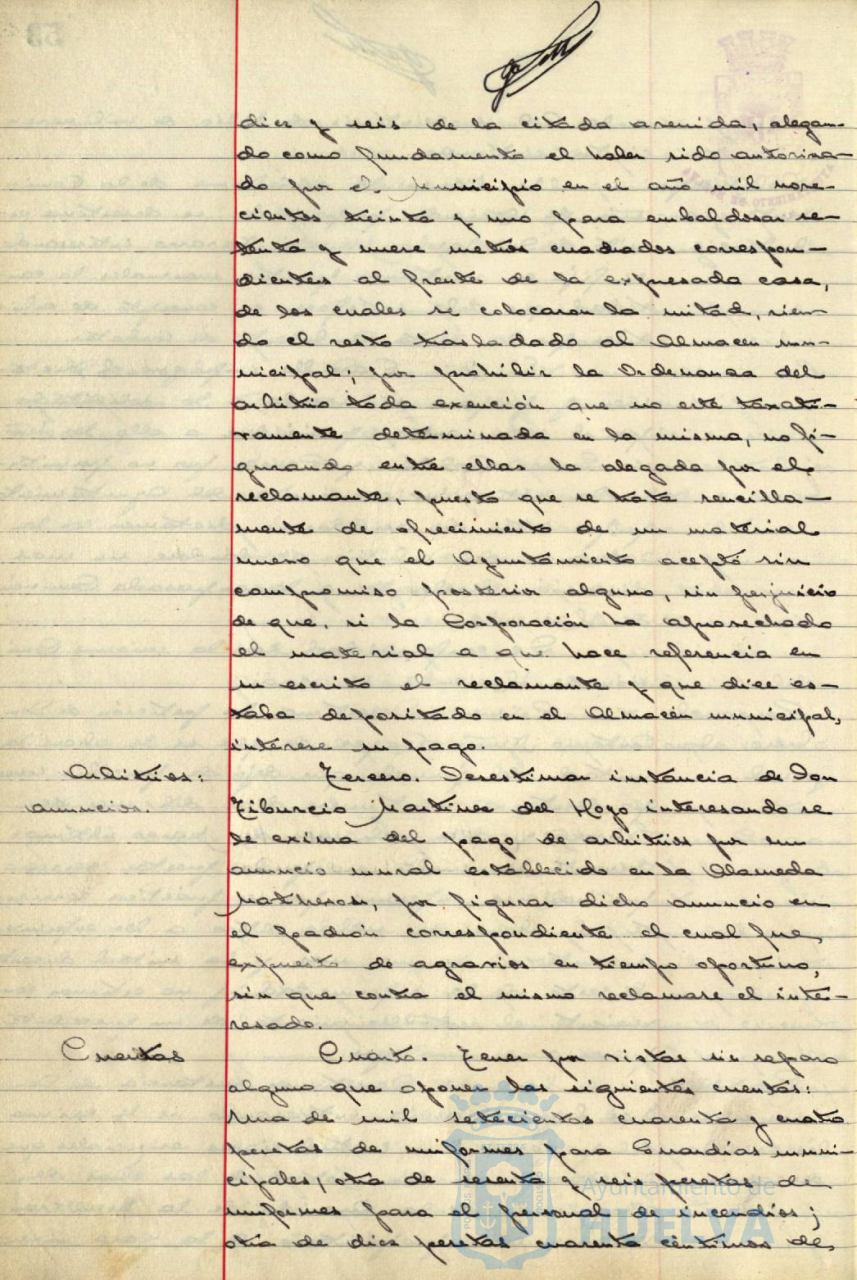 diez y seis de la citada avenida, alegan-
do como fundamento el haber sido autoriza-
do por el Municipio en el año mil nove-
cientos treinta y uno para embaldosar se-
tenta y nueve metros cuadrados correspon-
dientes al frente de la expresada casa,
de los cuales se colocaron la mitad, sien-
do el resto trasladado al Almacén mu-
nicipal; por prohibir la Ordenanza del
arbitrio toda exención que no esté taxati-
vamente determinada en la misma, no fi-
gurando entre ellas la alegada por el
reclamante, puesto que se trata sencilla-
mente de ofrecimiento de un material
nuevo que el Ayuntamiento aceptó sin
compromiso posterior alguno, sin perjuicio
de que, si la Corporación ha aprovechado
el material a que hace referencia en
su escrito el reclamante y que dice es-
taba depositado en el Almacén municipal,
interese su pago.
Arbitrios: Tercero. Desestimar instancia de Don
anuncios. Tiburcio Martínez del Hoyo interesando se
le exima del pago de arbitrios por un
anuncio mural establecido en la Alameda
por figurar dicho anuncio en
el padrón correspondiente el cual fue
expuesto de agravios en tiempo oportuno,
sin que contra el mismo reclamare el inte-
resado.
Cuentas Cuarto. Tener por vistas sin reparo
alguno que oponer las siguientes cuentas:
Una de mil setecientos cuarenta y cuatro
pesetas de uniformes para Guardias muni-
cipales; otra de sesenta y seis pesetas de
uniformes para el personal de incendios;
otra de diez pesetas cuarenta céntimos de
Ayuntamiento de
HUELVA